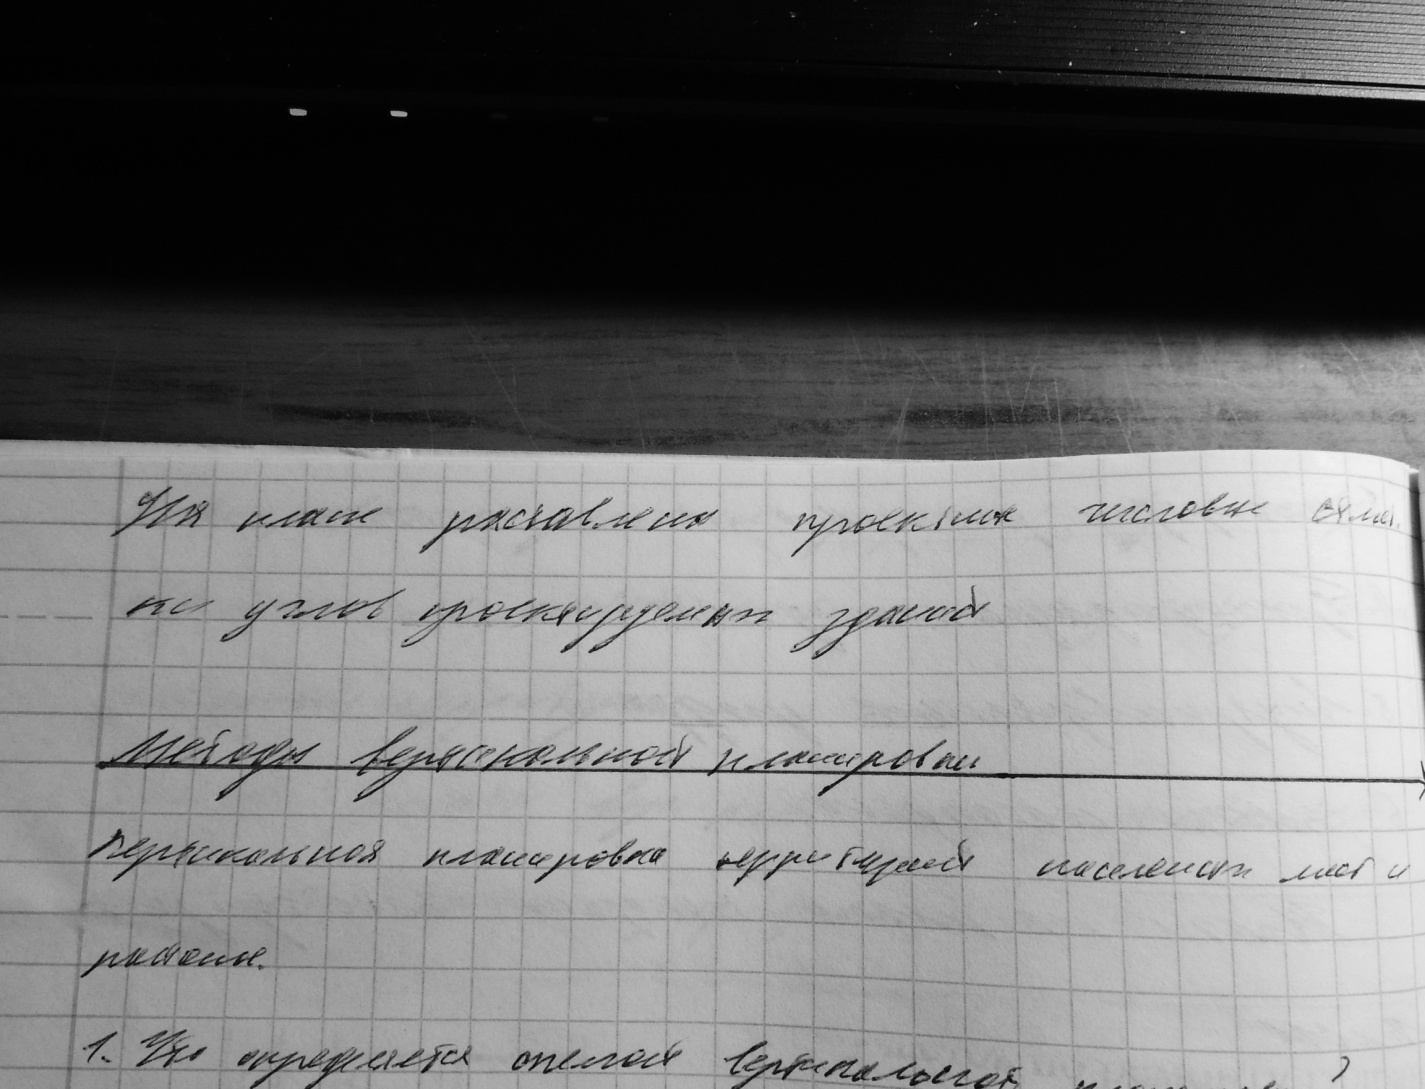 На плане расставлены проектные числовые отмет.
ки углов проектируемых зданий
Методы вертикальной планировки
Вертикальная планировка территорий населенных мест и
районы.
1. Что определяется схемой вертикальной ?